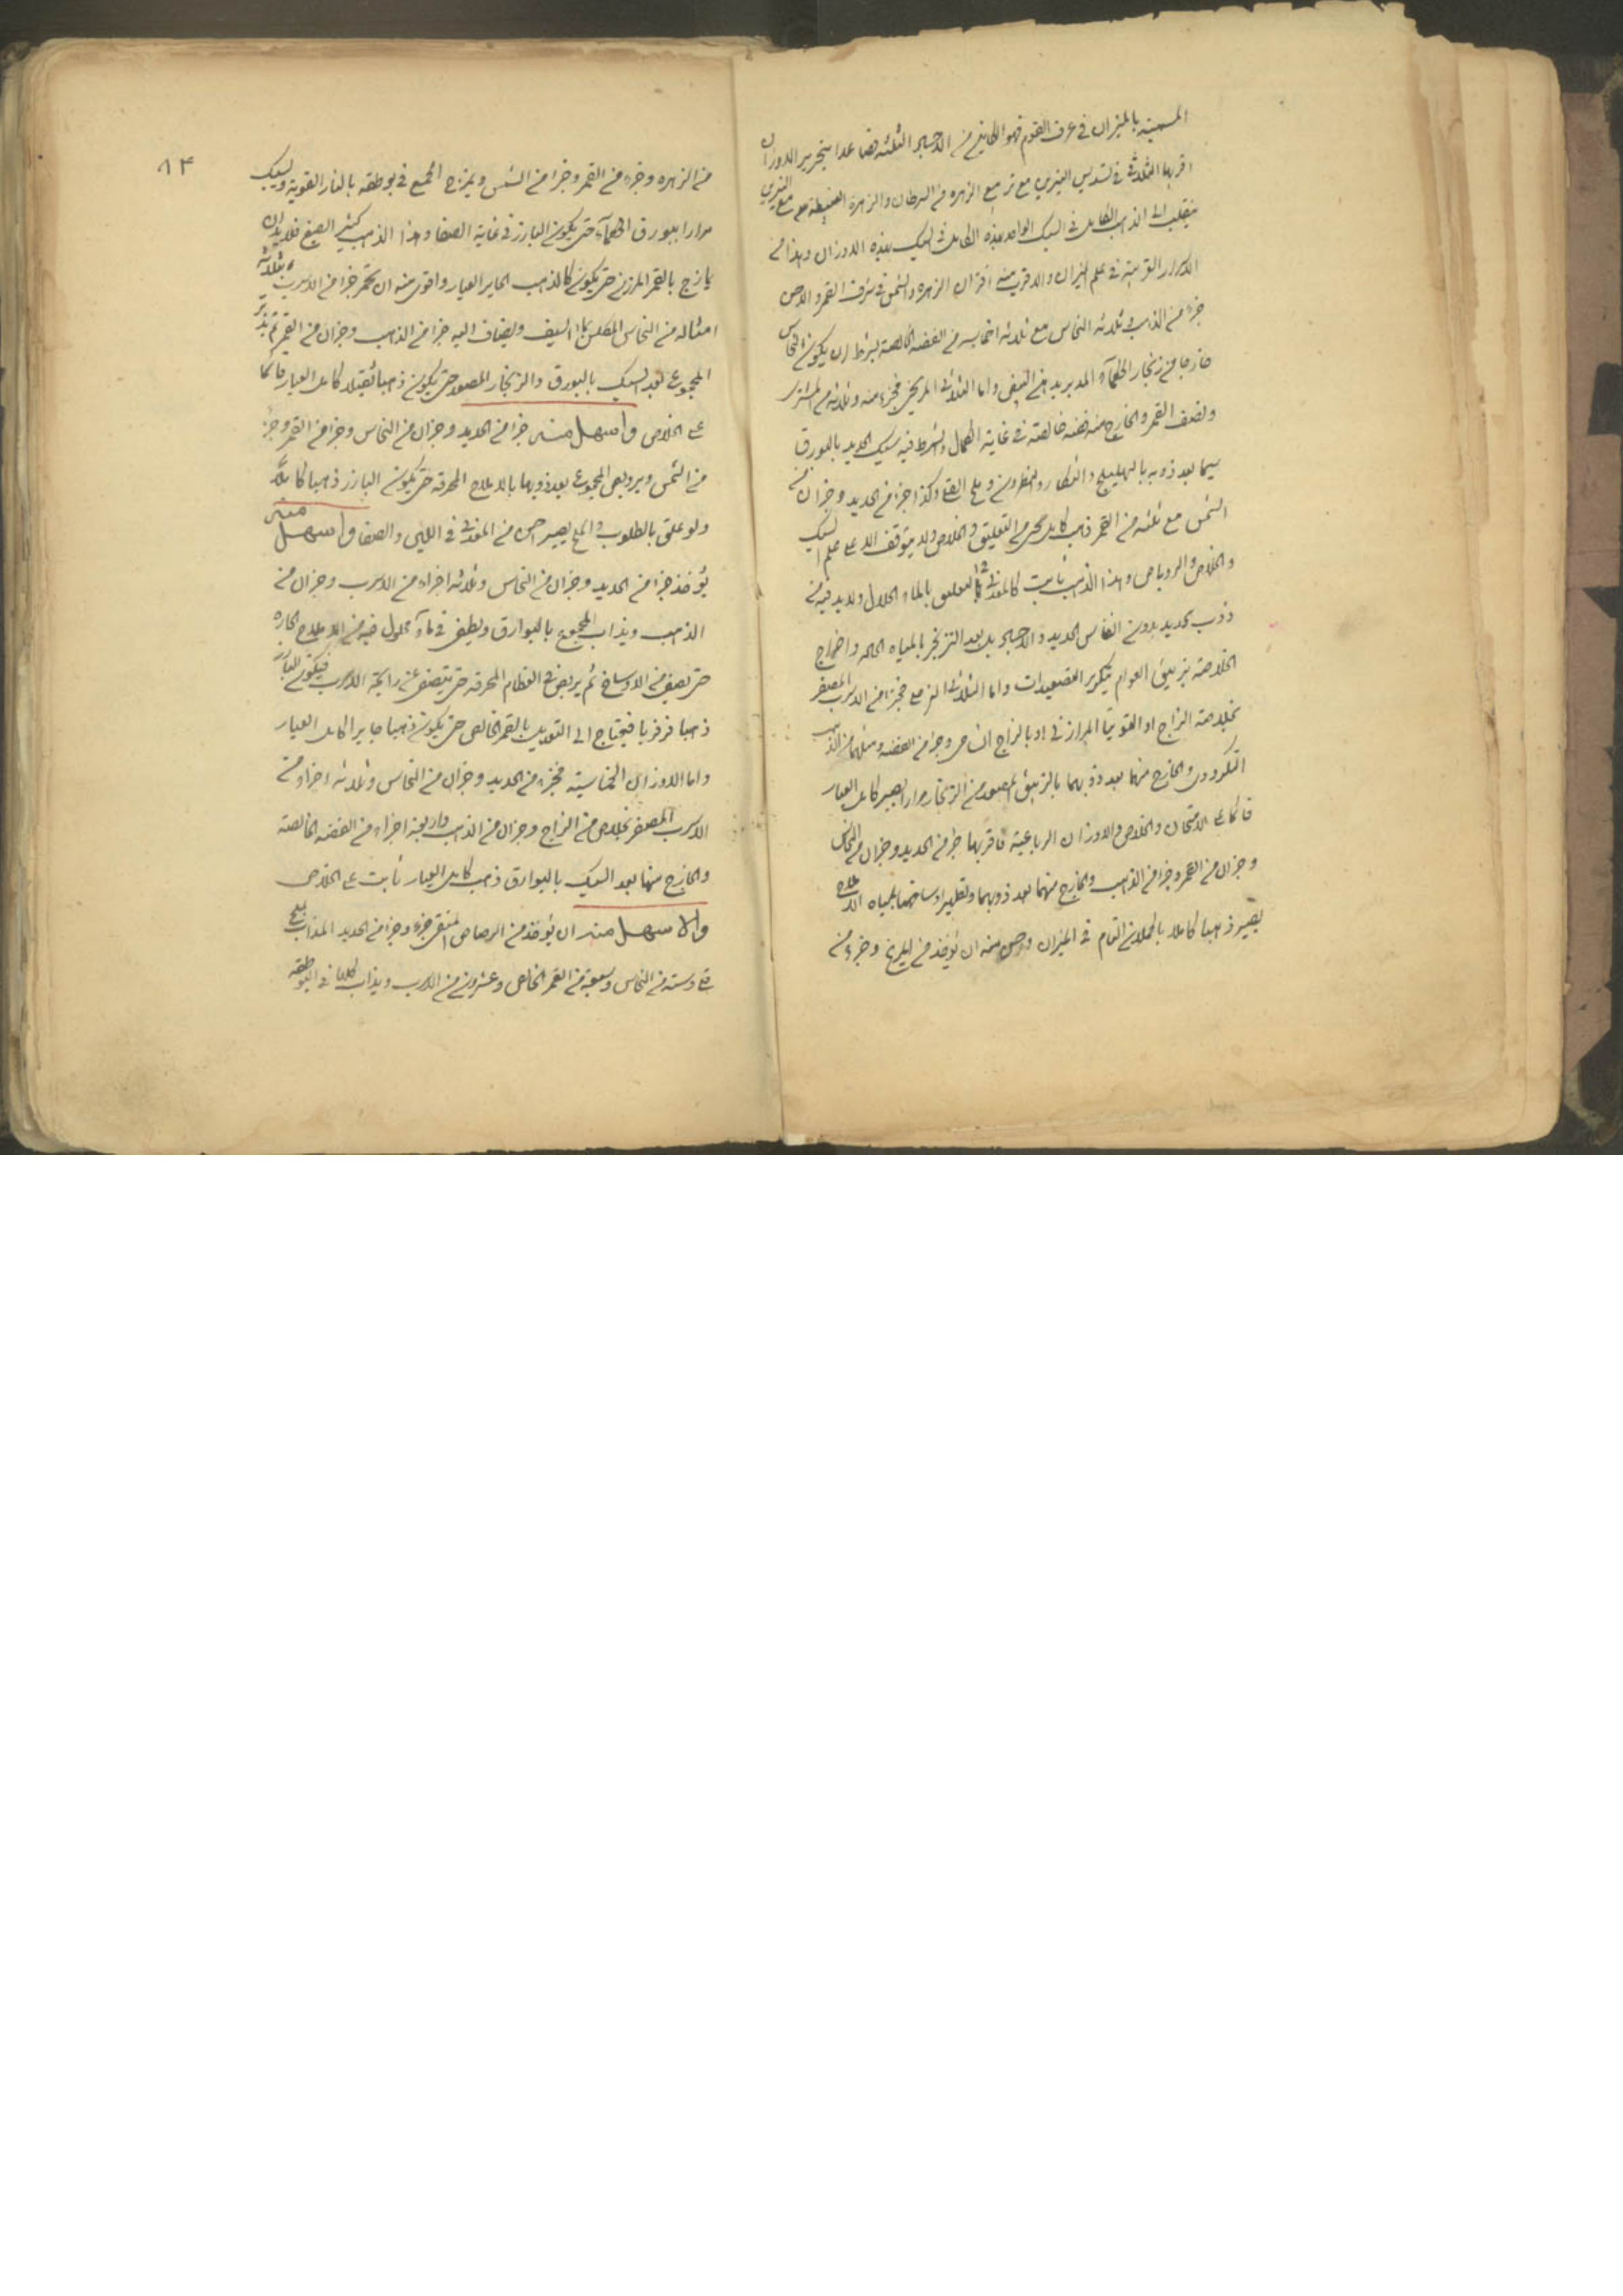 المسمية بالميزان في عرف القوم فهو الكاين من الاجساد الثلثه فصاعدا بتحرير الاوزان
اقربها التثليث في تسديس النيرين مع تربيع الزهره في السرطان والزهرة مع النيرين
ينقلب الى الذهب الكامل في السبك الواحد هذه الكامل في السبك بهذه الاوزان وهذا من
الاسرار القريبة في علم الميزان والاقرب منه اقتران الزهره والشمس في شرف القمر والاحسن
جزء من الذهب في ثلاثه النحاس مع ثلاثه اخماسه من الفضه الخالصه بشرط ان يكون النحاس
خارجا من زنجار الحكمآء المدبر بدهن البيض واما الثلاثي المريخي فجزء منه وثلاثه من المشتري
ونصف القمر والخارج منه فضه خالصة في غاية الكمال ويشرط فيه سبك الحديد بالبورق
سيما بعد ذوبه بالهليلج والتنكار والنطرون وملح القلي وكذا جزء من الحديد وجزان من
الشمس مع ثلثه من القمر ذهب كامل يحمي التعليق والخلاص ولا يتوقف الا على علم السبك
والخلاص والروباص وهذا الذهب ثابت كالمعدني في التعليق بالماء الحلال ولابد فيه من
ذوب الحديد بدون انفاس الحديد والاجساد بل بعد التزنجر بالمياه الحاده واخراج
الخلاصة بزيبق العوام بتكرير التصعيدات واما الثلاثي فجزء من الاسرب المصفر
بخلاصة الزاج او القوبيا المرازني او بالزاج الشامي وجزء من الفضه ومثلهما من الذهب
التكروري والخارج منها بعد ذوبهما بالزيبق المصعد من الزنجار مرارا يصير كامل العيار
قائما على الامتحان والخلاص والاوزان الرباعية فاقربها جزء من الحديد وجزان من النحاس
وجزان من القمر وجزء من الذهب والخارج منهما بعد ذوبهما وتطهير اوساخهما بالمياه الحاده
يصير ذهبا كاملا بالحملان التام في الميزان واحسن منه ان يؤخذ من المريخ وجزء من
٨٣
من الزهره وجزء من القمر وجزا من الشمس ويمزج الجميع في بوطقه بالنار القوية ويسبك
مرارا ببورق الحكمآء حتى يكون البارز في غاية الصفا وهذا الذهب كثير الصبغ فلا بد ان
يمازج بالقمر المرزن حتى يكون كالذهب الجاير العيار واقوى منه ان تحمر جزا من الاسرب بثلاثه
امثاله من النحاس المكلس بماء السيف ويضاف اليه جزا من الذهب وجزان من القمر ثم يدبر
المجموع بعد السبك بالبورق والزنجار المصعد حتى يكون ذهبا ثقيلا كامل العيار قائما
على الخلاص واسهل منه جزا من الحديد وجزان من النحاس وجزا من القمر وجز
من الشمس ويروبص المجموع بعد ذوبها بالاملاح المحرقه حتى يكون البارز ذهبا كاملا
ولو علق بالطلوب والملح يصير احسن من المعدني في اللين والصفا واسهل منه
يؤخذ جزا من الحديد وجزان من النحاس وثلاثه اجزاء من الاسرب وجزان من
الذهب ويذاب المجموع بالبوارق ويطفى في مآء محلول فيه من الاملاح الحاره
حتى يصفى من الاوساخ ثم يربص في العظام المحرقه حتى يتصفى عن رايحة الاسرب فيكون البارز
ذهبا فرفريا فيحتاج الى التعديل بالقمر الخالص حتى يكون ذهبا جايرا كامل العيار
واما الاوزان الخماسية فجزء من الحديد وجزان من النحاس وثلاثه اجزاء من
الاسرب المصفر بخلاص من الزاج وجزان من الذهب واربعة اجزاء من الفضه الخالصة
والخارج منها بعد السبك بالبوارق ذهب كامل العيار ثابت على الخلاص
والاسهل منه ان يؤخذ من الرصاص المنقى جزء وجزا من الحديد المذاب بملح
قلي وسته من النحاس وسبعة من القمر الخالص وعشرون من الاسرب ويذاب كلها في البوطقه